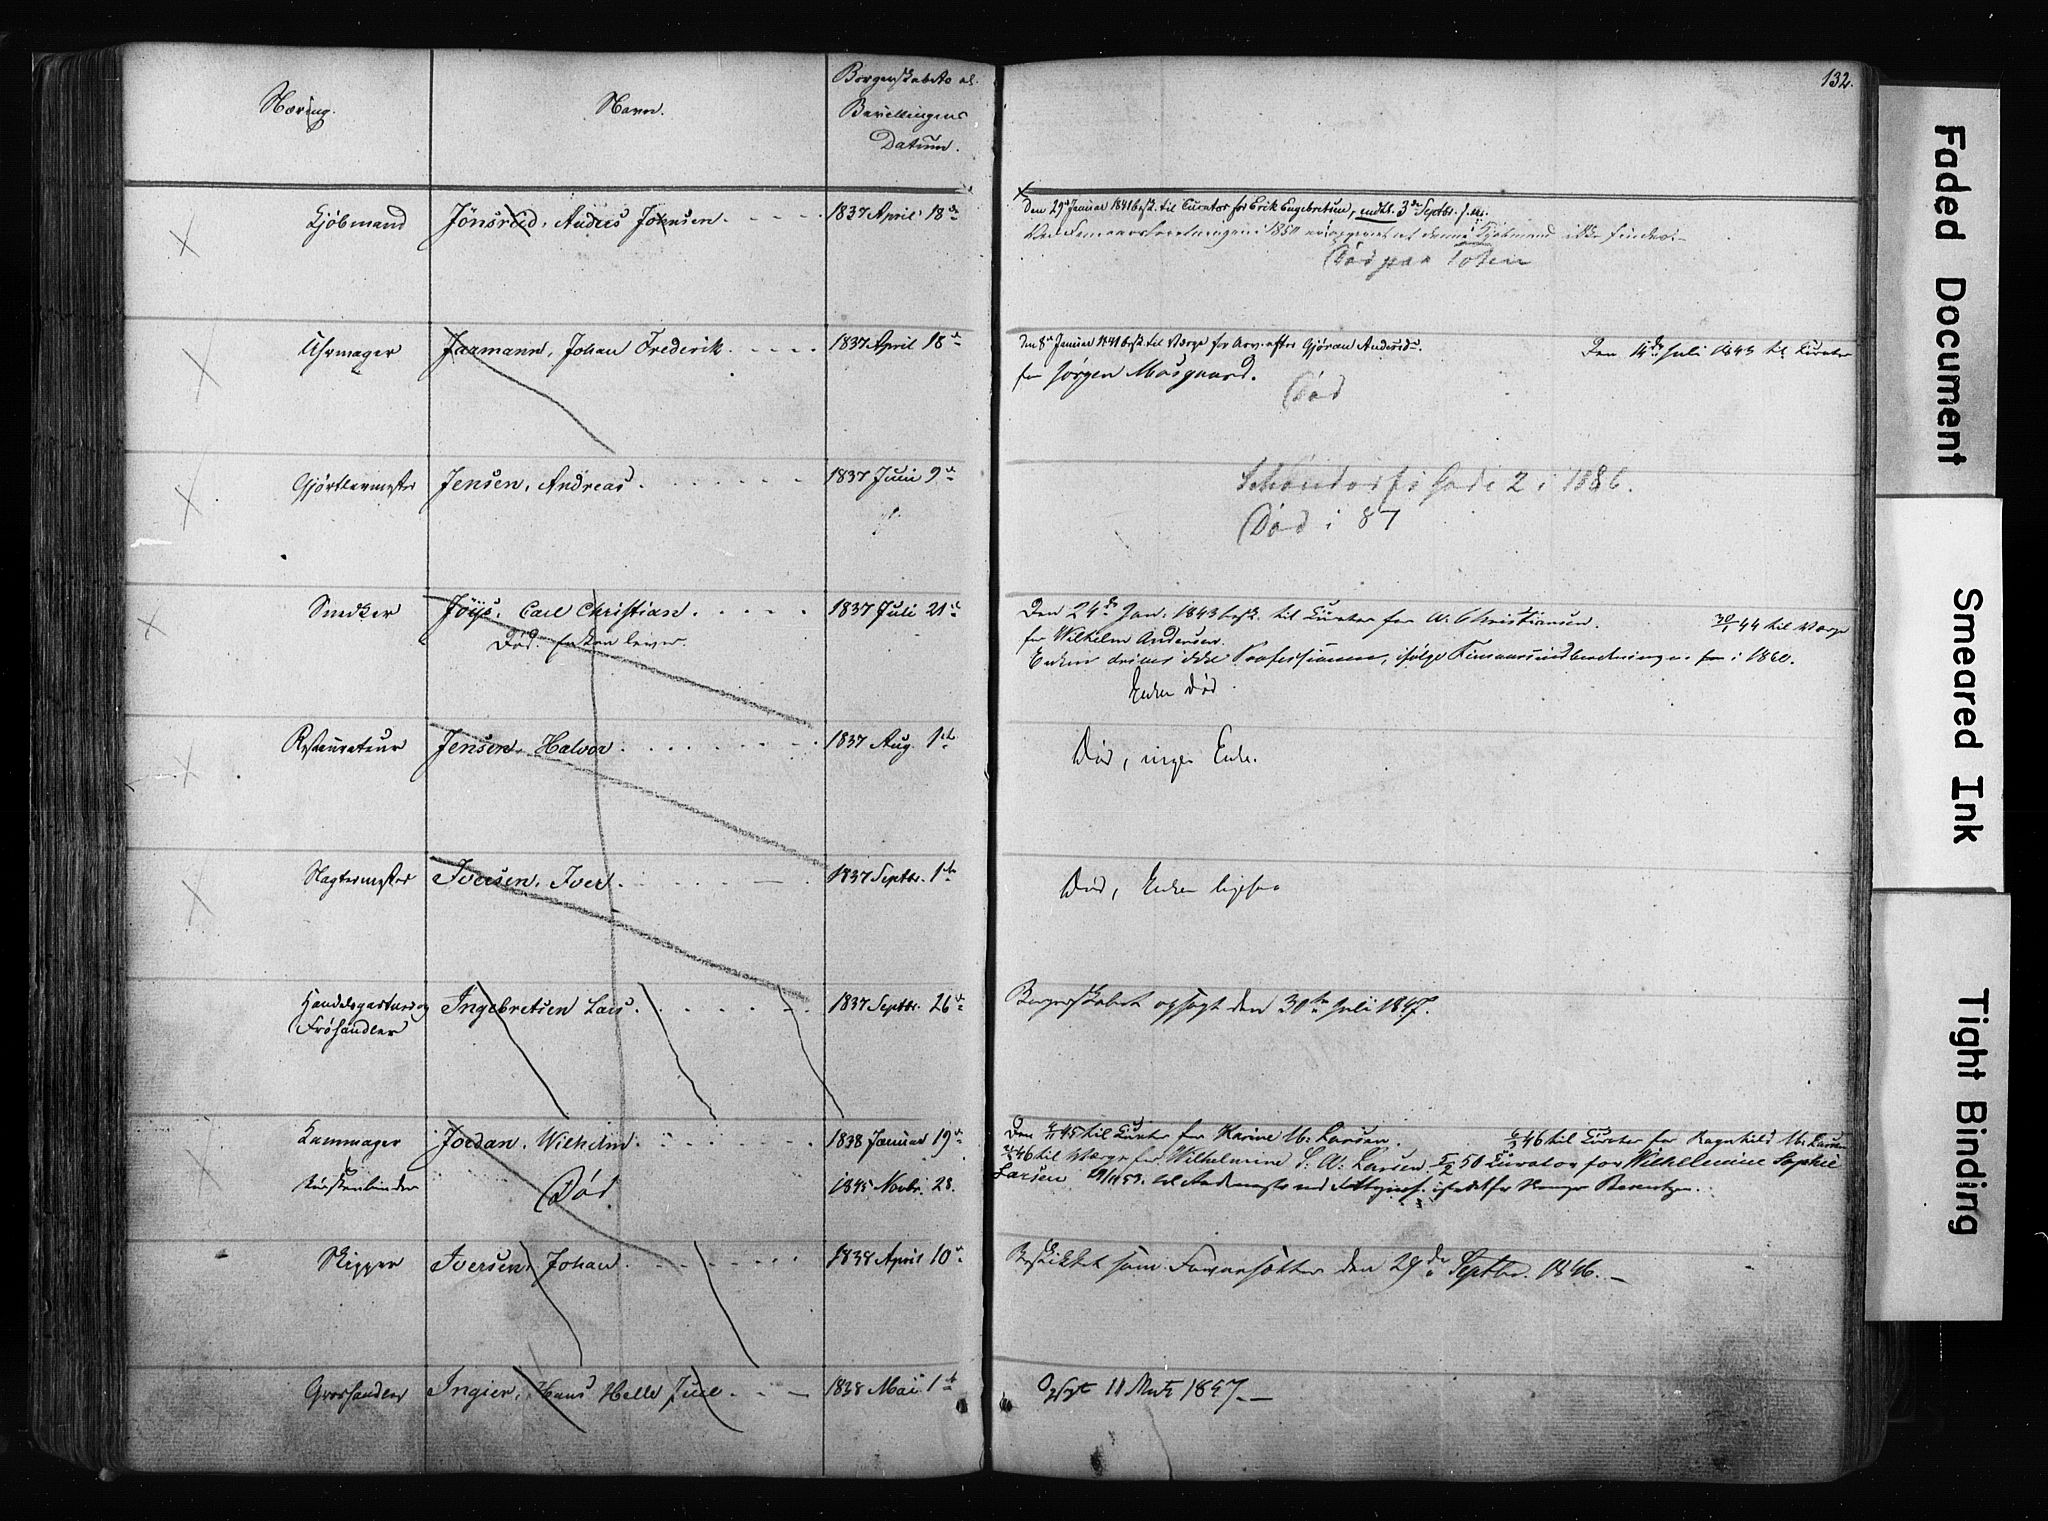 Næring.
Navn.
Borgerskabets el.
Bevillingens
Datum.
132.
Kjøbmand
Jönsrud, Anders Johnsen
1837 April 18de
Den 29de Januar 1841 besk. til Curator for Erik Engebretsen, entl. 3de Septbr. s.A.
i 1850 at denne Kjøbmand ikke findes.
Død paa Toten
Uhrmager
Jaxmann, Johan Frederik
1837 April 18de
Den 8de Januar 1841 besk. til Værge for Arv. efter Gjøran
Den 14de Juli 1843 til Curator
for Jørgen Mosgaard.
Død
Gjørtlermester
Jensen, Andreas
1837 Juni 9de
Schöndorfs Gade 2 i 1886.
Død i 87
Snedker
Jöys, Carl Christian
1837 Juli 21de
Død. Enken lever.
Den 24de Jan. 1843 besk. til Curator for A. Christiansen.
30/1 44 til Værge
for Wilhelm Andersen.
Enken driver ikke Professionen, ifølge i 1860.
Enken død.
Restaurateur
Jensen, Halvor
1837 Aug. 1ste
Død, ingen Enke.
Slagtermester
Iversen, Iver
1837 Septbr. 1ste
Død, Enken ligesaa
Handelsgartner og
Frøhandler
Ingebretsen Lars
1837 Septbr. 26de
Borgerskabet opsagt den 30te Juli 1847.
Kammager
Jordan, Wilhelm
1838 Januar 19de
Børstenbinder
Død
1845 Novbr. 28.
Den 45 til Curator for Karine M. Larsen.
46 til Curator for Ragnhild M. Larsen
46 til Værge for Wilhelmine S. A. Larsen. 50 Curator for Wilhelmine Sophie
Larsen
Skipper
Iversen, Johan
1838 April 10de
Beskikket som den 29de Septbr. 1846.
Groshandler
Ingier, Hans Helle Juul
1838 Mai 1ste
Opsagt 11 Marts 1847.
Faded Document
Smeared Ink
Tight Binding